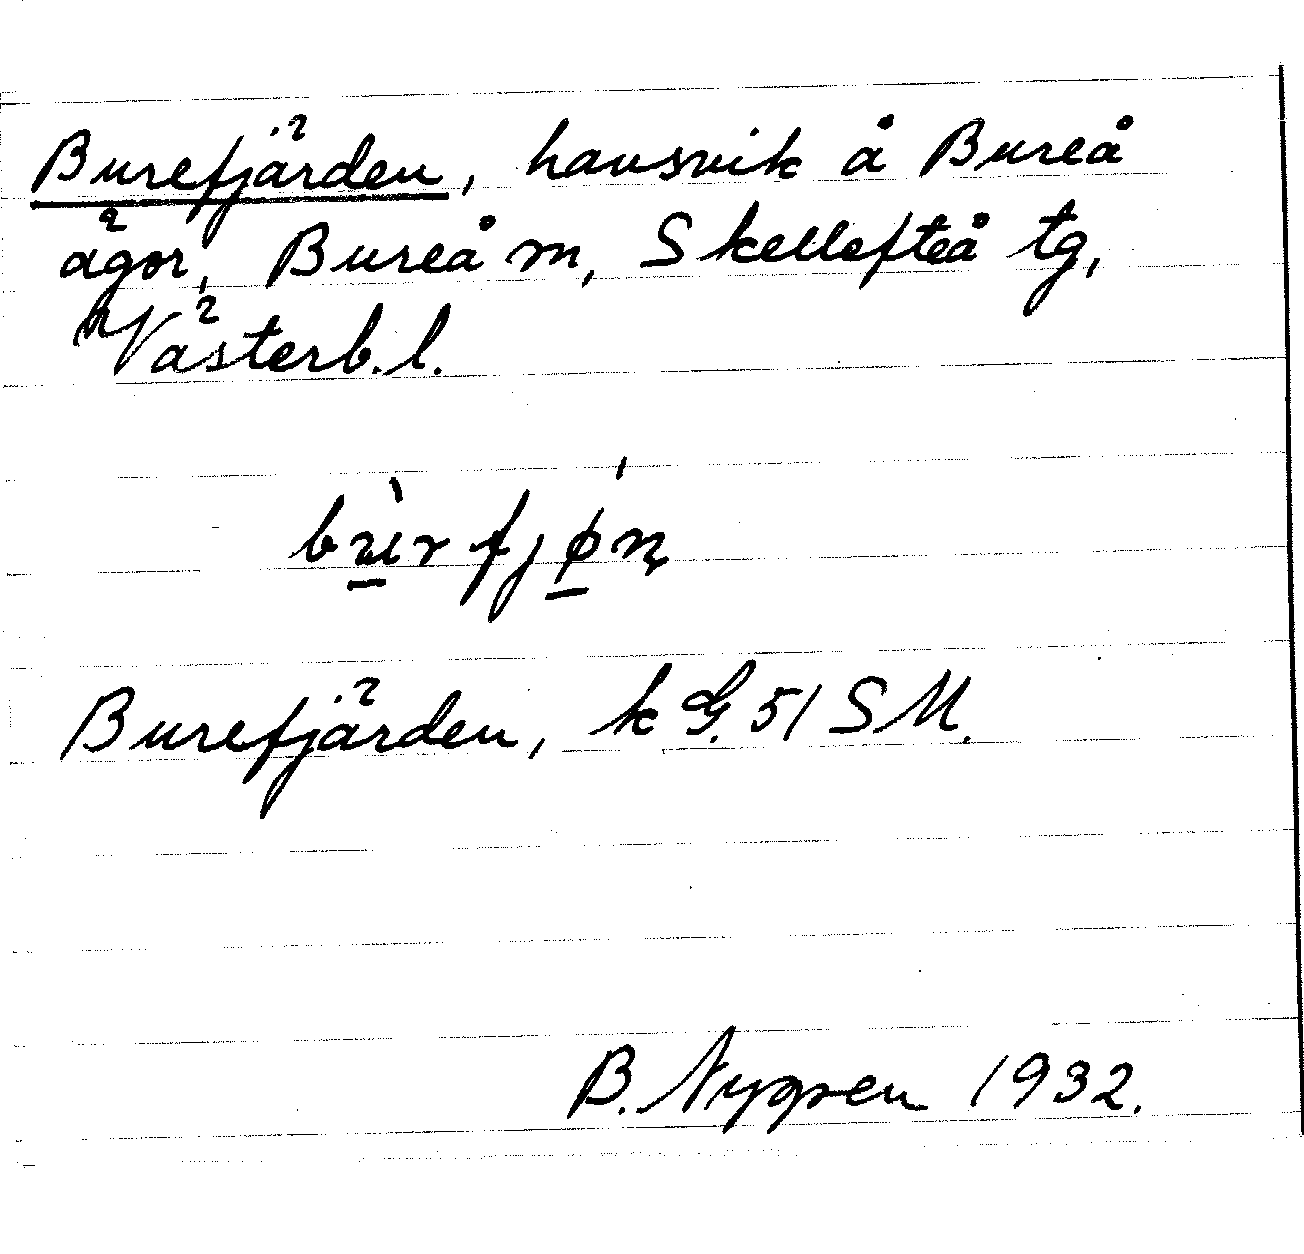 Burefjärden, havsvik å Bureå
ägor, Bureå m, Skellefteå tg,
Västerb. l.
bù̲rfjǿ̲ɳ
Burefjärden, k G. 51 SM.
B. Nygren 1932.